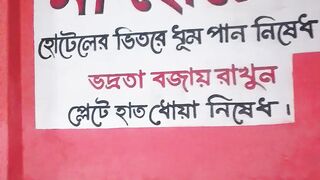 হোটেলের ভিতরে ধূম পান নিষেধ
ভদ্রতা বজায় রাখুন
প্লেটে হাত ধোয়া নিষেধ।